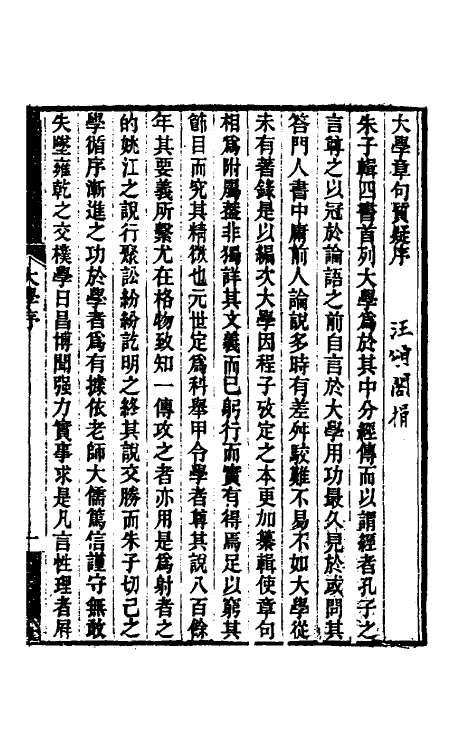 大學章句質疑序
汪頌閣捐
朱子輯四書首列大學爲於其中分經傳而以謂經者孔子之
言尊之以冠於論語之前自言於大學用功最久見於或問其
答門人書中庸前人論說多時有差舛駮難不易不如大學從
未有著錄是以編次大學因程子攷定之本更加纂輯使章句
相爲附屬蓋非獨詳其文義而已躬行而實有得焉足以窮其
節目而究其精微也元世定爲科舉甲令學者尊其說八百餘
年其要義所繫尤在格物致知一傳攻之者亦用是爲射者之
的姚江之說行聚訟紛紛訖明之終其說交勝而朱子切己之
學循序漸進之功於學者爲有據依老師大儒篤信謹守無敢
失墜雍乾之交樸學日昌博聞强力實事求是凡言性理者屛
大學序
一